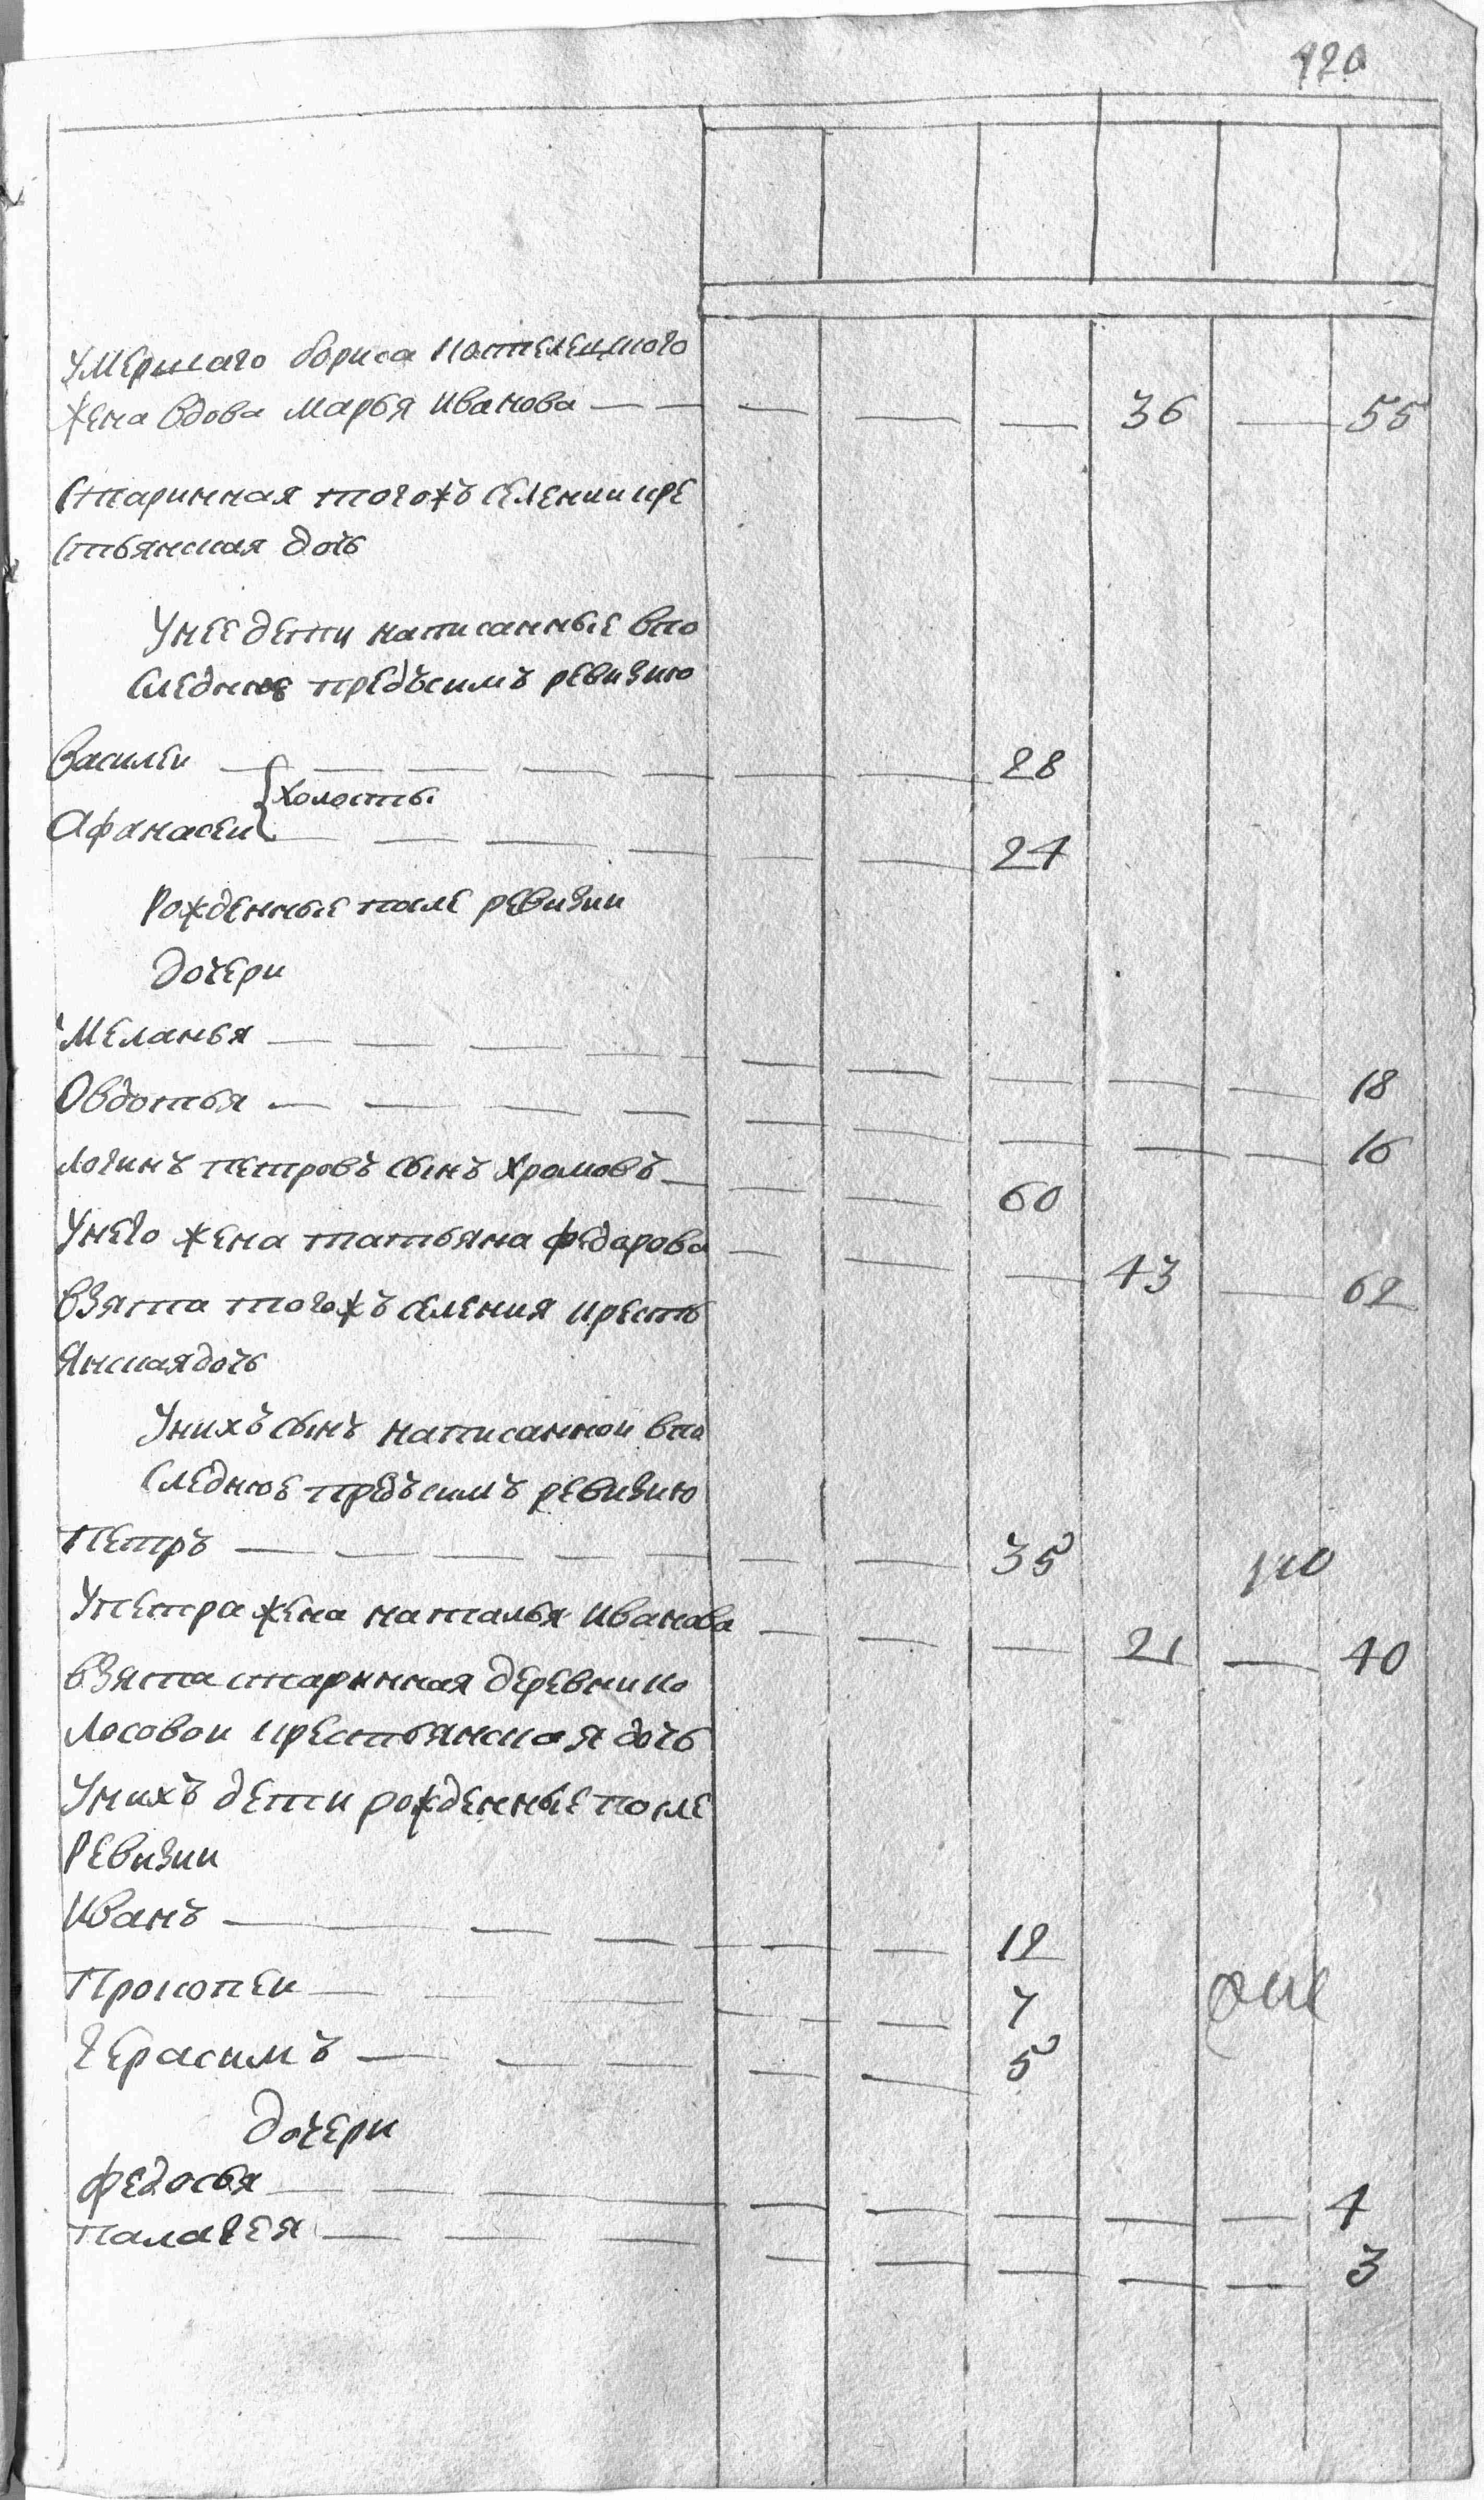 420
умершаго бориса котелецкого
жена вдова марья иванова — — — — — 36 — 55
старинная тогожъ селении кре
стьянская дочь
унее дети написанные впо
следнюе предъсимъ ревизию
василеи — — — — — — — 28
холосты
Афанасеи — — — — — — 24
Рожденные после ревизии
дочери
Меланья — — — — — — — — — 18
Овдотья — — — — — — — — — 16
логинъ петровъ сынъ храмовъ — — — 60
унего жена татьяна федарова — — — 43 — 62
взята тогожъ селения кресть
янская дочь
унихъ сынъ написанной впо
следнюе предъсимъ ревизию
петръ — — — — — — — 35
упетра жена наталья иванова — — — 21 — 40
взята старинная деревни ко
лосовой крестьянская дочь
унихъ дети рожденные после
Ревизии
иванъ — — — — — — — 12
прокопеи — — — — — — 7
герасимъ — — — — — 5
дочери
федосья — — — — — — — — — 4
палагея — — — — — — — — 3